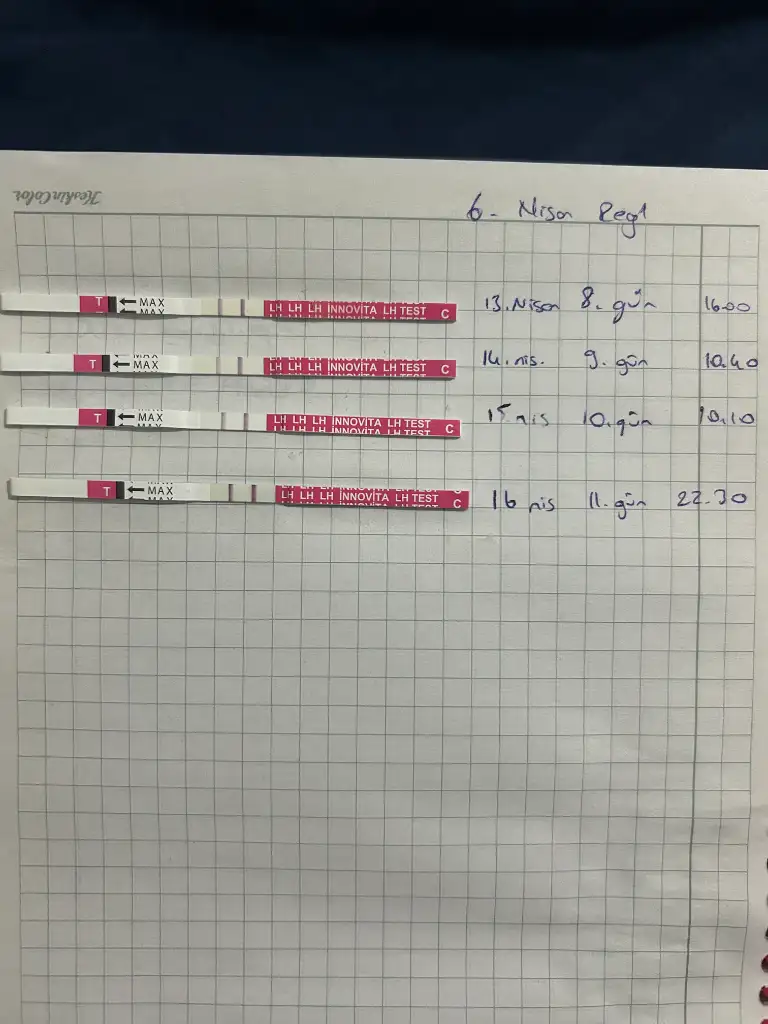 KeskinColor
6- Nisan Regl
T ← MAX LH LH LH INNOVITA LH TEST C 13. Nisan 8. gün 16.00
T ← MAX LH LH LH INNOVITA LH TEST C 14. nis. 9. gün 10.40
T ← MAX LH LH LH INNOVITA LH TEST C 15 nis 10. gün 10.10
T ← MAX LH LH LH INNOVITA LH TEST C 16 nis 11. gün 22.30